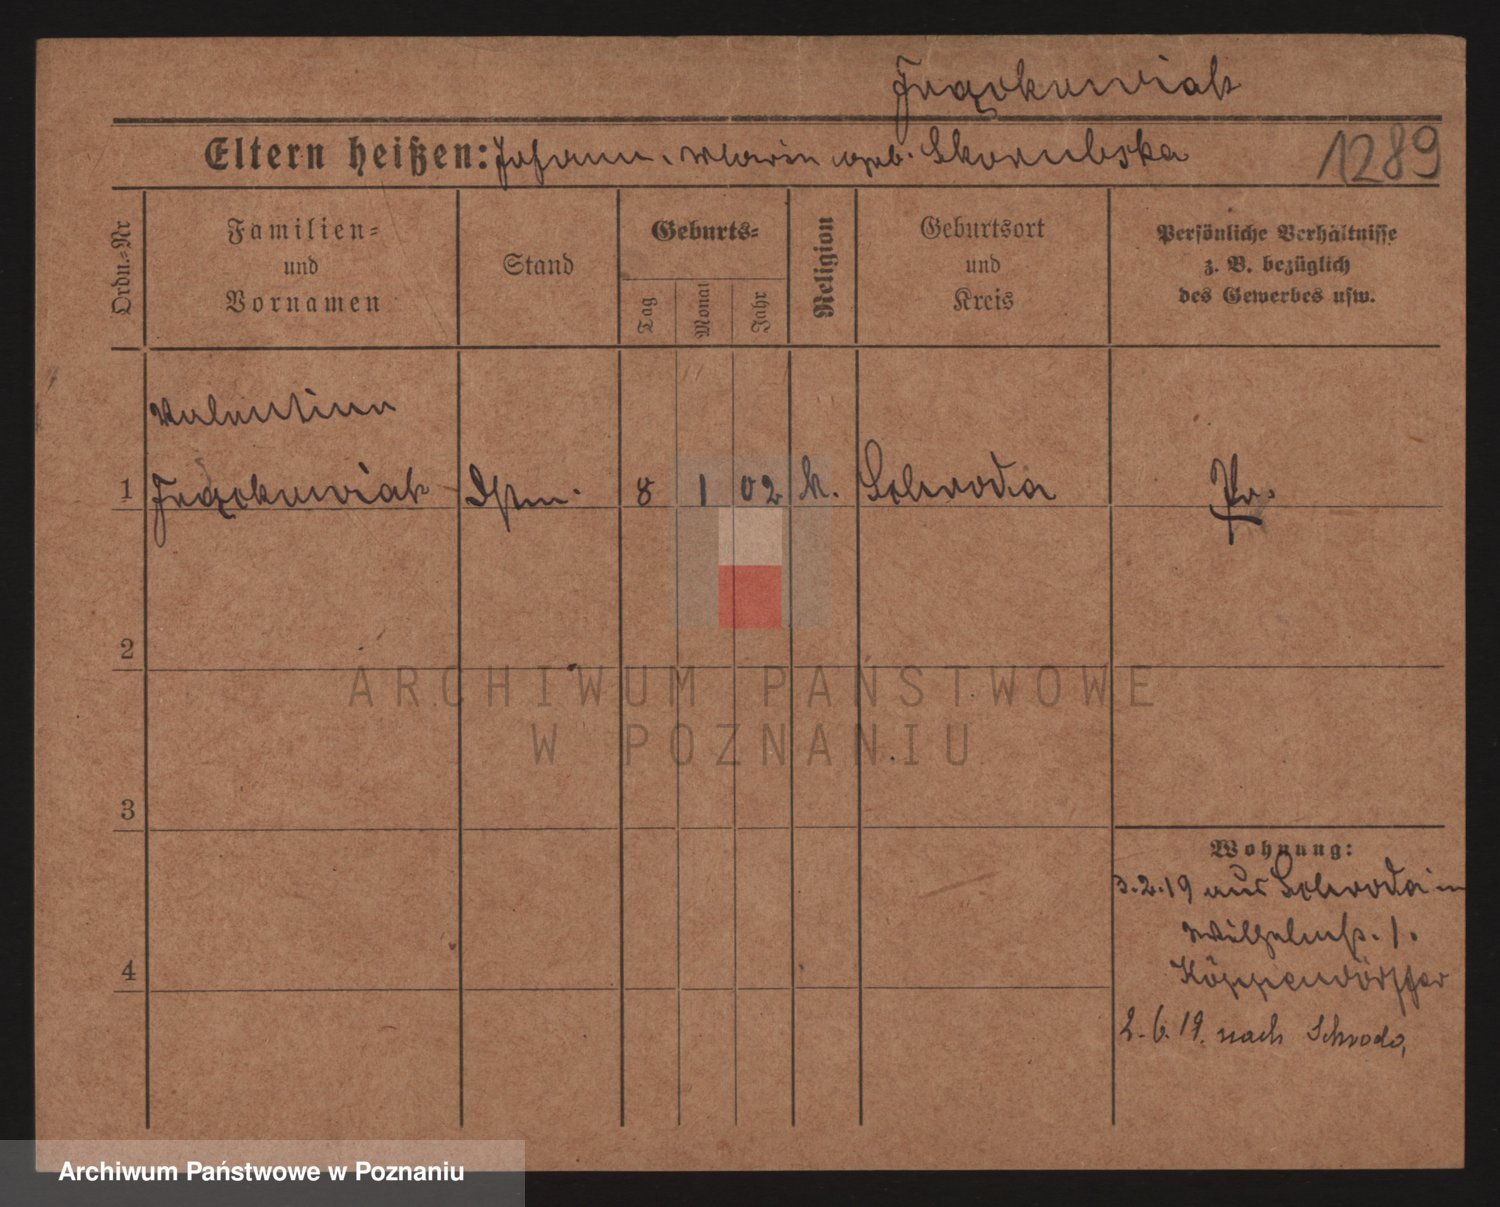 Frąckowiak
Eltern heißen: Johann, Marie geb. Skorubska
1289
Ordn.-Nr
Familien-
und
Vornamen
Stand
Geburts-
Tag
Monat
Jahr
Religion
Geburtsort
und
Kreis
Persönliche Verhältnisse
z. B. bezüglich
des Gewerbes usw.
Valentina
1 Frąckowiak 8 1 02 k. Schroda Pr.
2
3
4
Wohnung:
3.2.19 aus Schroda in
Wilhelmstr. 1.
2.6.19. nach Schroda,
ARCHIWUM PAŃSTWOWE
W POZNANIU
Archiwum Państwowe w Poznaniu